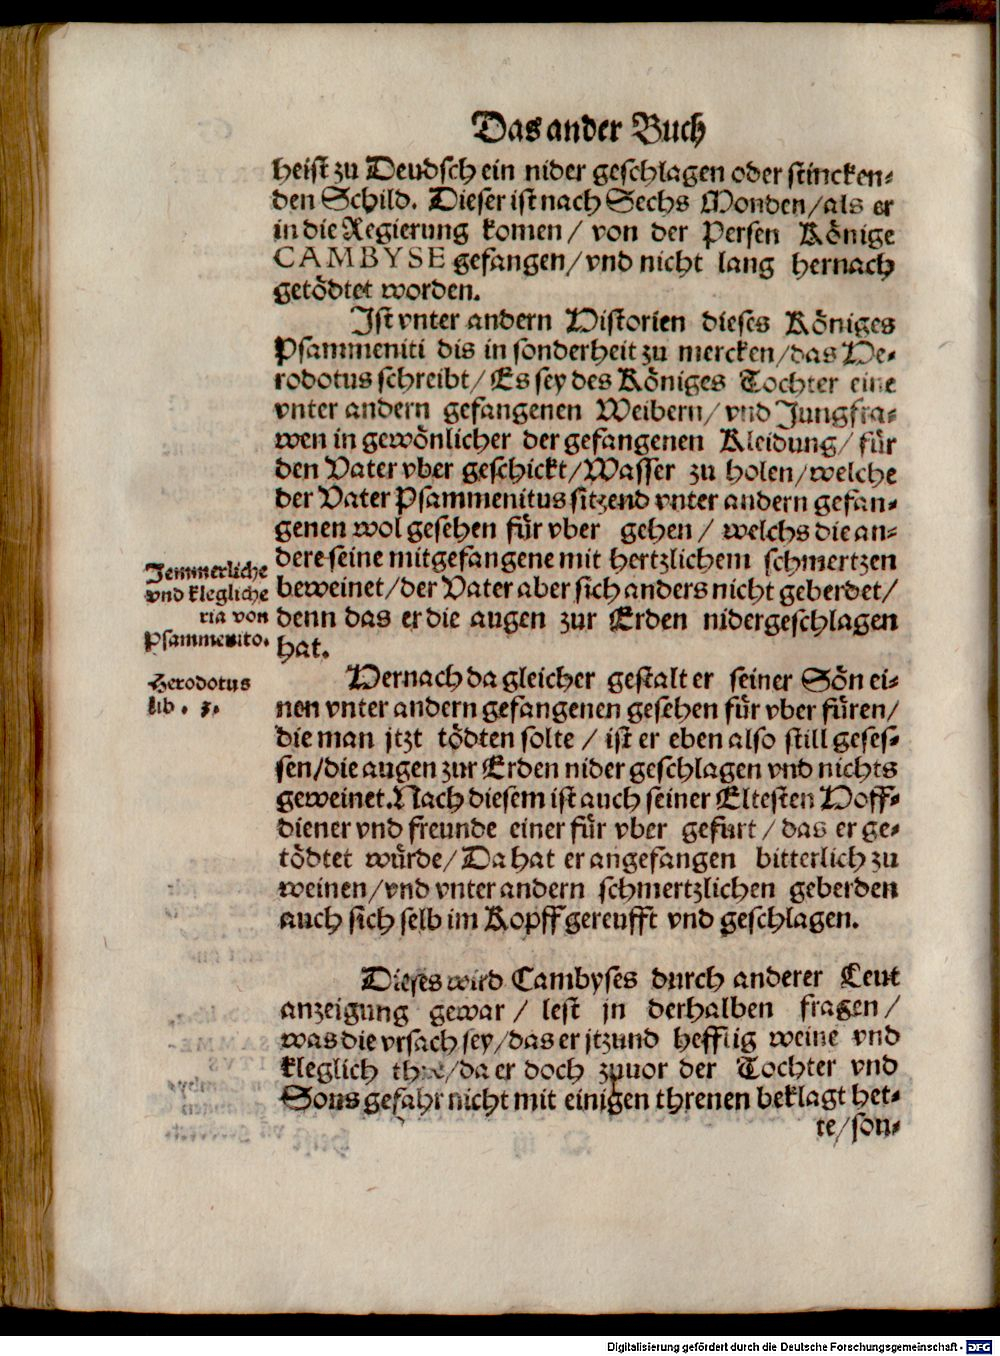 Das ander Buch
heist zu Deudsch ein nider geschlagen oder stincken-
den Schild. Dieser ist nach Sechs Monden/als er
in die Regierung komen/ von der Persen Könige
CAMBYSE gefangen/vnd nicht lang hernach
getödtet worden.
Ist vnter andern Historien dieses Königes
Psammeniti dis in sonderheit zu mercken/das He-
rodotus schreibt/ Es sey des Königes Tochter eine
vnter andern gefangenen Weibern/ vnd Jungfra-
wen in gewönlicher der gefangenen Kleidung/ für
den Vater vber geschickt/Wasser zu holen/welche
der Vater Psammenitus sitzend vnter andern gefan-
genen wol gesehen für vber gehen / welchs die an-
dere seine mitgefangene mit hertzlichem schmertzen
beweinet/der Vater aber sich anders nicht geberdet/
denn das er die augen zur Erden nidergeschlagen
hat.
Jemmerliche
vnd klegliche
ria von
Psammenito.
Herodotus
lib. 3.
Hernach da gleicher gestalt er seiner Sön ei-
nen vnter andern gefangenen gesehen für vber füren/
die man jtzt tödten solte / ist er eben also still geses-
sen/die augen zur Erden nider geschlagen vnd nichts
geweinet. Nach diesem ist auch seiner Eltesten Hoff-
diener vnd freunde einer für vber gefurt/das er ge-
tödtet würde/Da hat er angefangen bitterlich zu
weinen/vnd vnter andern schmertzlichen geberden
auch sich selb im Kopff gereufft vnd geschlagen.
Dieses wird Cambyses durch anderer Leut
anzeigung gewar / lest jn derhalben fragen /
was die vrsach sey/das er jtzund hefftig weine vnd
kleglich /da er doch zuuor der Tochter vnd
Sons gefahr nicht mit einigen threnen beklagt het-
te/son-
Digitalisierung gefördert durch die Deutsche Forschungsgemeinschaft - DFG